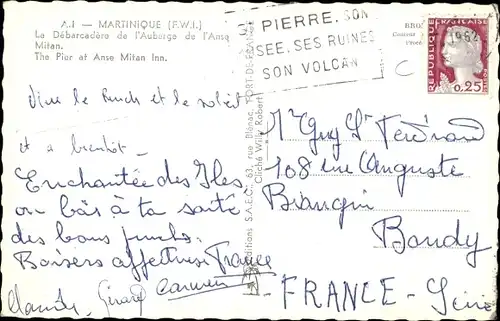 A.1 - MARTINIQUE (F.W.I.)
Le Débarcadère de l'Auberge de l'Anse
Mitan.
The Pier at Anse Mitan Inn.
PIERRE. SON
SEE. SES RUINES
SON VOLCAN
1962
REPUBLIQUE FRANÇAISE
0,25
Vive le Punch et le soleil
et a bientôt -
Enchantée des Iles
on bâs à ta santé
des bons punchs.
Baisers affectueux France
Claude, Gérard Carmen
Editions S.A.E.C. 63, rue Blénac, FORT-DE-FRANCE
Cliché Willy Robert
Mr Guy St Ferdinand
108 rue Auguste
Blanqui
Bondy
FRANCE - Seine